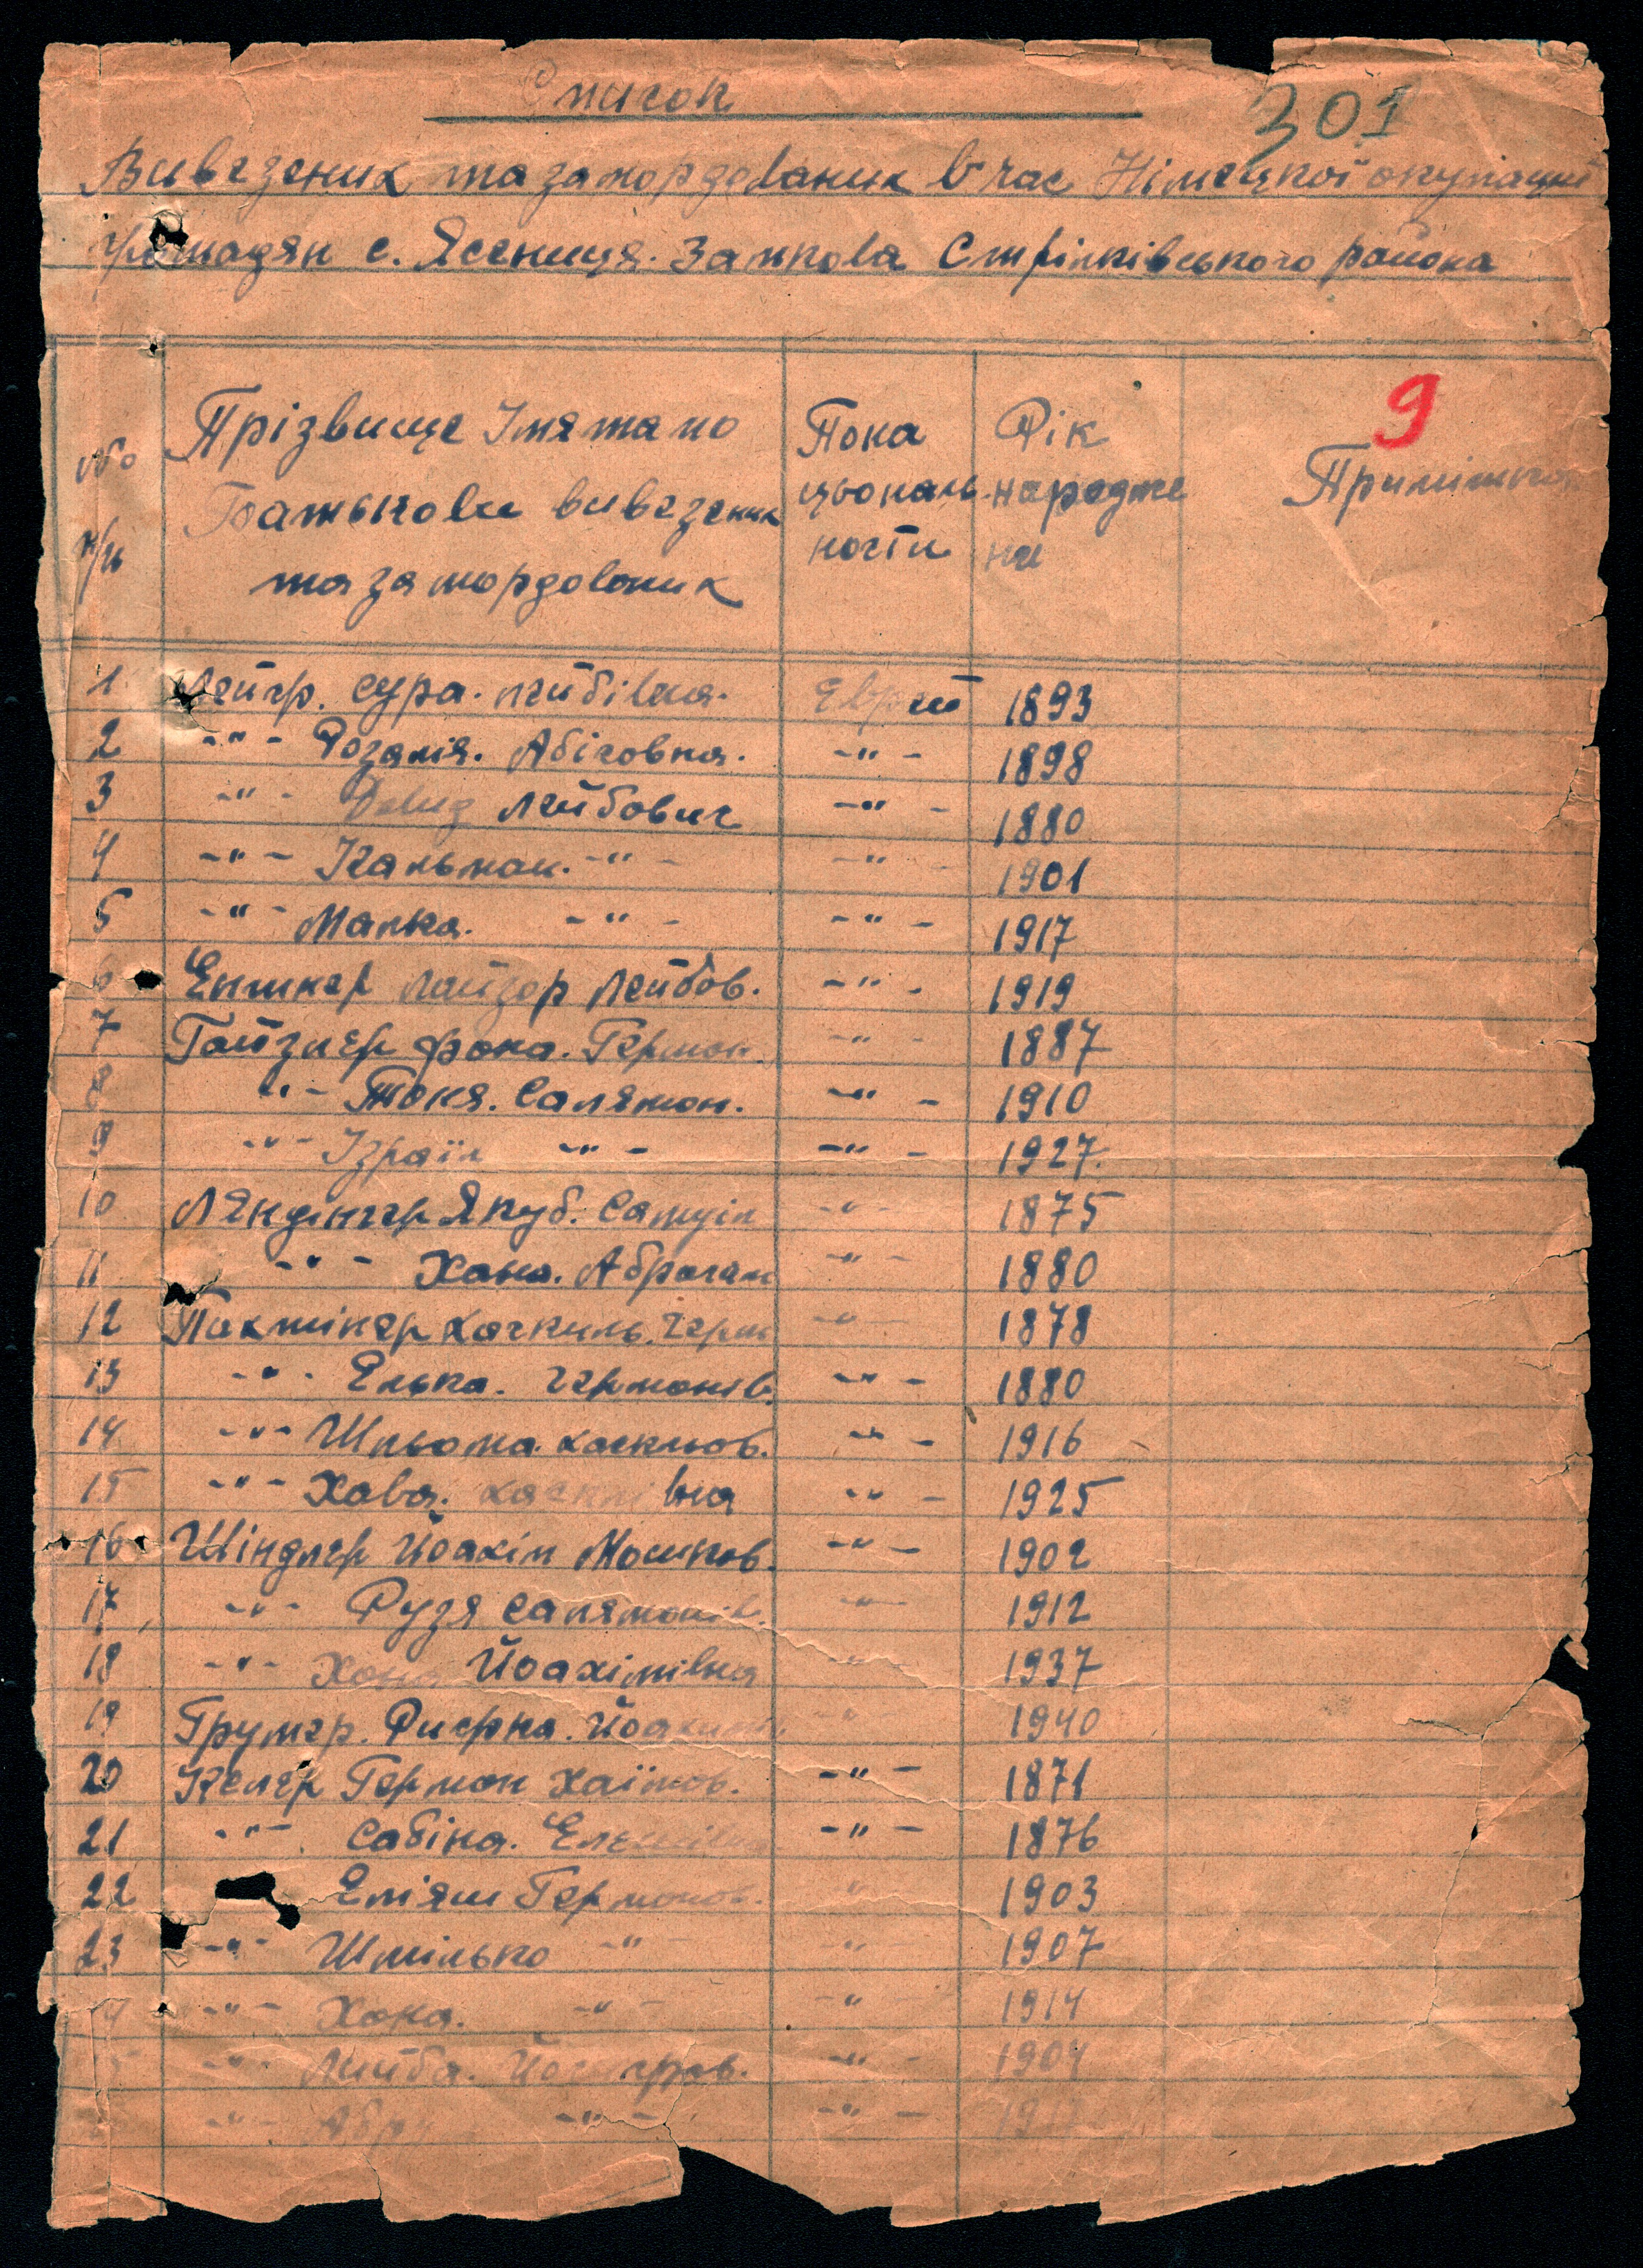 Список
301
Вивезених та замордованих в час Німецкої окупації
громадян с. Ясениця. Замкова Стрілківського района
№ п/п
Прізвище Імя та по Батькови вивезених та замордованих
Наца цьональ ности
Рік народже ня
9
Примітка
1 Лейер. Сура. Лейбівна. Еврей 1893
2 -"- Розалія. Абіговна. -"- 1898
3 -"- Давид Лейбович -"- 1880
4 -"- Кальман. -"- -"- 1901
5 -"- Малка. -"- -"- 1917
6 Лайзор Лейбов. -"- 1919
7 Гайзлер Герман. -"- 1887
8 -"- Тоня. Салямон. -"- 1910
9 -"- Ізраїл -"- -"- 1927.
10 Якуб. Самуіл -"- 1875
11 -"- Хана. Аброгам -"- 1880
12 Герш -"- 1878
13 -"- Елька. Германів. -"- 1880
14 -"- Шльома. -"- 1916
15 -"- Хава. -"- 1925
16 Шіндлер Йоахім Мошков. -"- 1902
17 -"- Рузя Салямонів. -"- 1912
18 -"- Хона Йоахімівна -"- 1937
19 -"- 1940
20 Келер Герман Хаїмов. -"- 1871
21 -"- Сабіна. -"- 1876
22 Еліяш Германов. -"- 1903
23 -"- Шмілько -"- -"- 1907
-"- Хона. -"- -"- 1914
-"- Лейба. -"- 1904
-"- -"- -"-